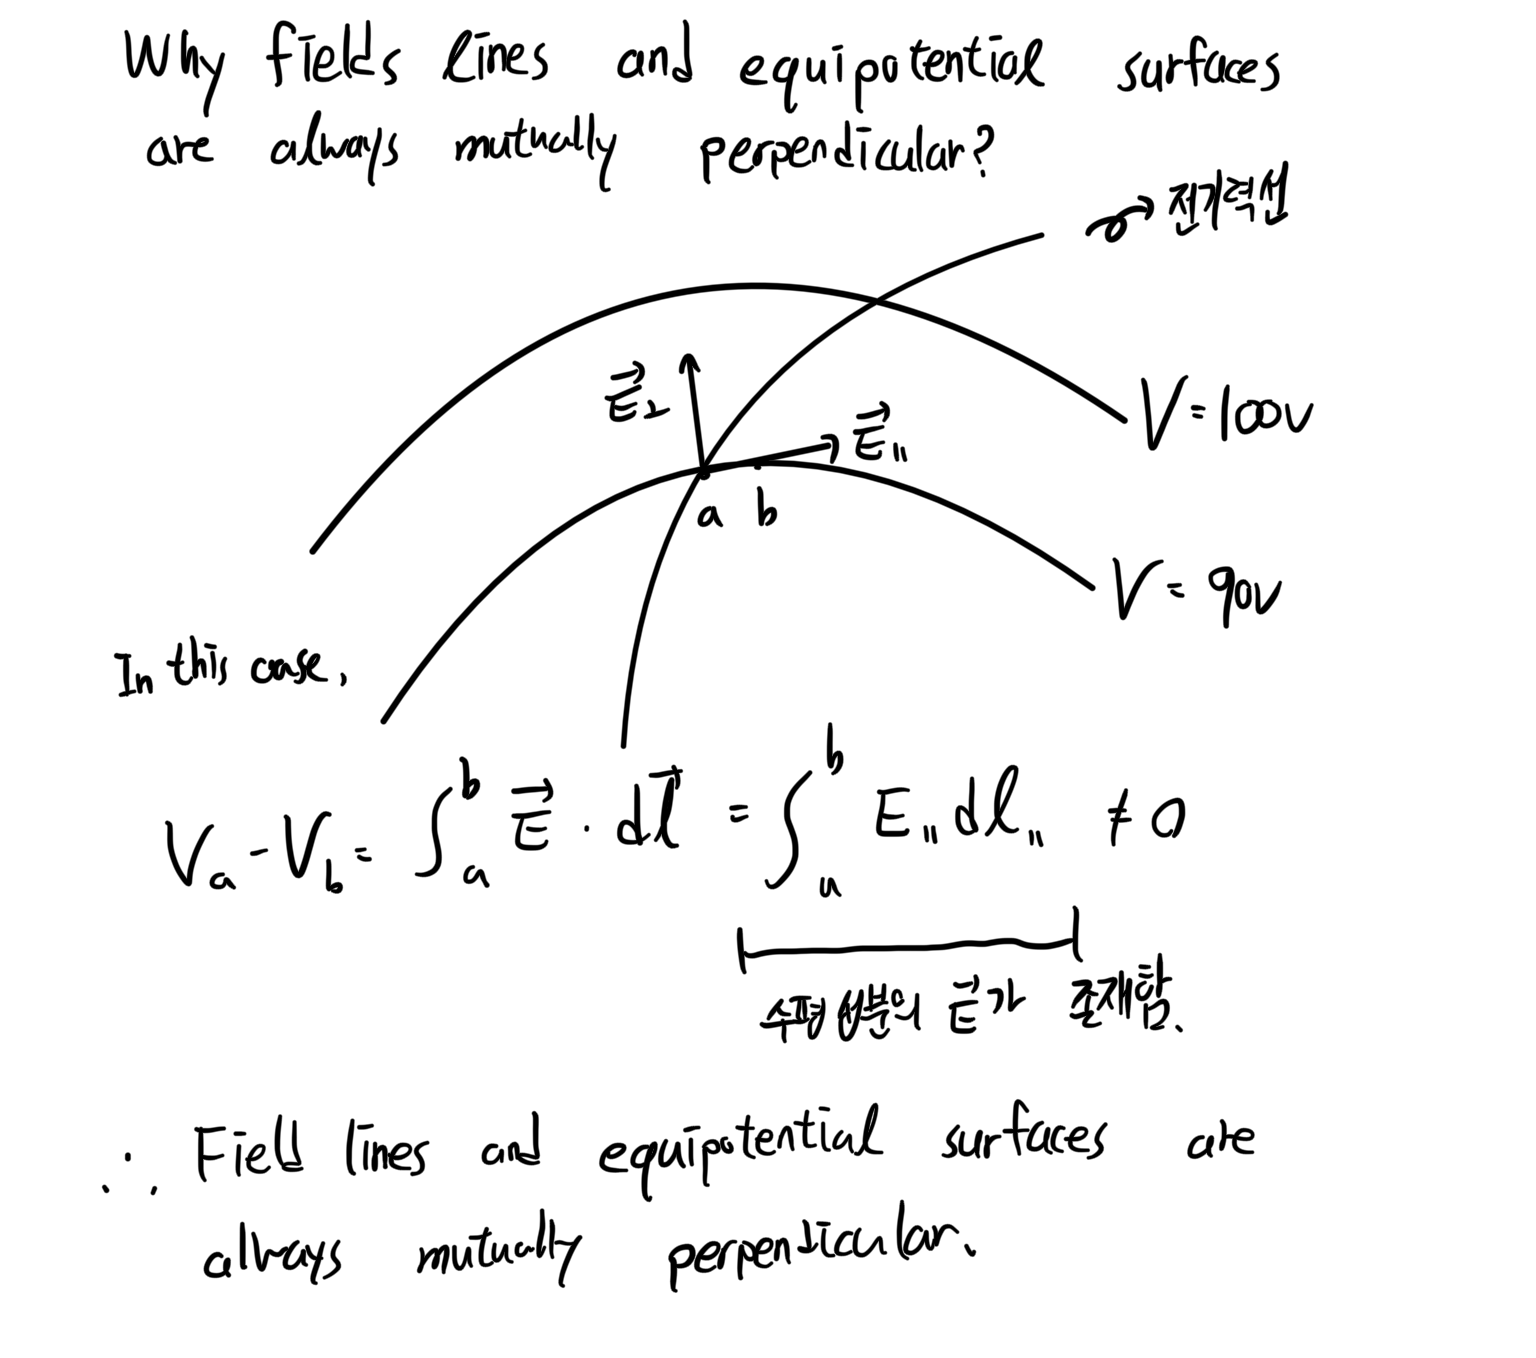 Why fields lines and equipotential surfaces
are always mutually perpendicular?
전기력선
E⃗⊥
E⃗∥
a b
V = 100V
V = 90V
In this case,
Va - Vb = ∫ₐᵇ E⃗ · dl⃗ = ∫ₐᵇ E∥ dl∥ ≠ 0
수평성분의 E⃗가 존재함.
∴ Field lines and equipotential surfaces are
always mutually perpendicular.